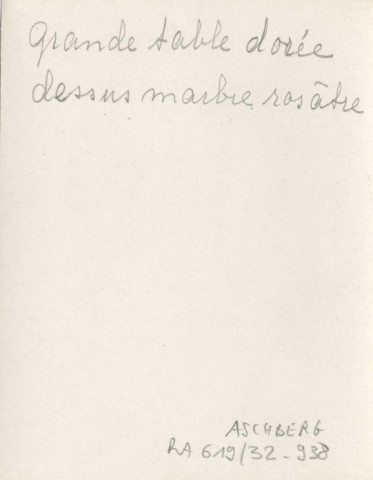 grande table dorée
dessus marbre rosâtre
ASCHBERG
RA 619/32-938